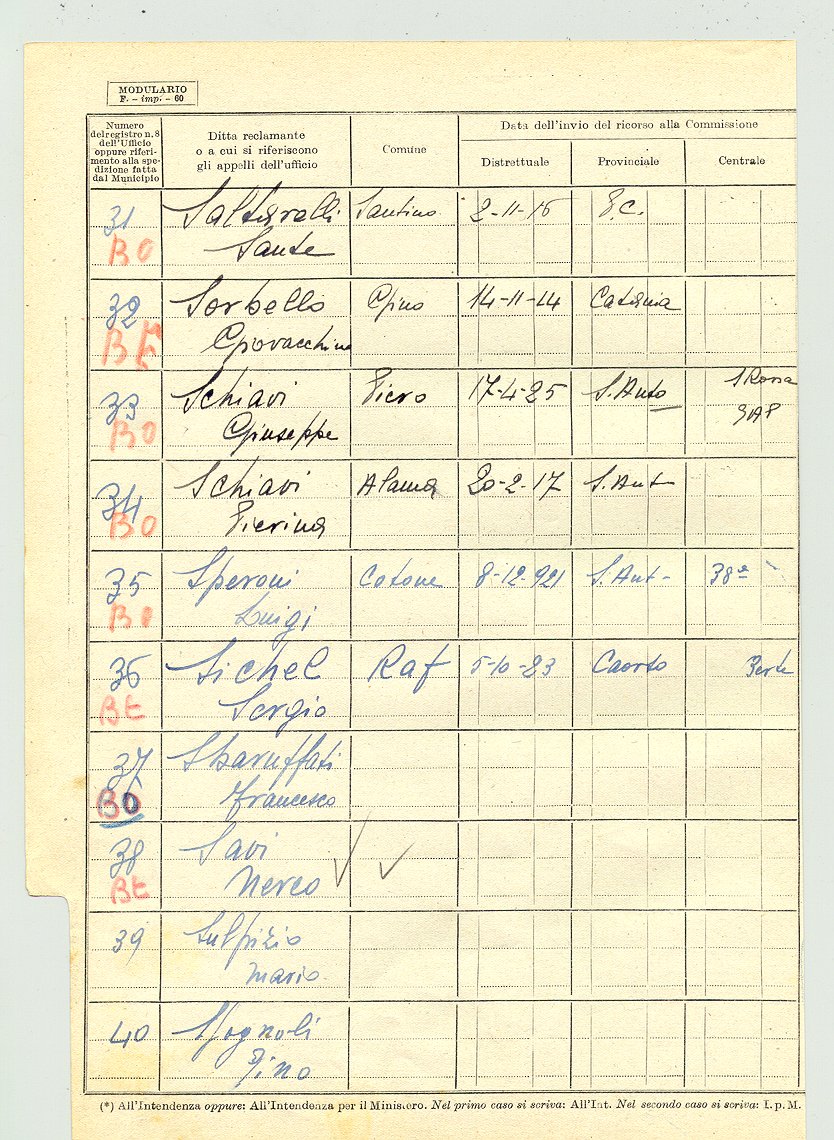 MODULARIO
F. - imp. - 60
Numero del registro n. 8 dell'Ufficio oppure riferimento alla spedizione fatta dal Municipio
Ditta reclamante
o a cui si riferiscono
gli appelli dell'ufficio
Comune
Data dell'invio del ricorso alla Commissione
Distrettuale Provinciale Centrale
31 Saltarelli Santino 2-11-16 P.C.
BO Sante
32 Sorbello Gino 14-11-14 Catania
BE Giovacchino
33 Schiavi Piero 17-4-25 S. Anto
BO Giuseppe
34 Schiavi 20-2-17 S. Ant-
BO Pierina
35 Speroni Cotone 8-12-921 S. Ant- 38ª
BO Luigi
36 Sichel Raf 5-10-23 Caorso
BE Sergio
37 Sbaruffati
BO Francesco
38 Savi
BE Nereo
39 Sulpizio
Mario
40 Sfognoli
Pino
(*) All'Intendenza oppure: All'Intendenza per il Ministero. Nel primo caso si scriva: All'Int. Nel secondo caso si scriva: I. p. M.